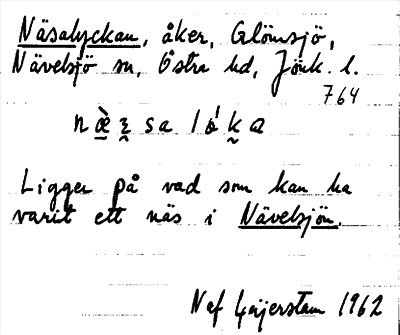 Näsalyckan, åker, Glömsjö,
Nävelsjö sn, Östra hd, Jönk. l.
764
Ligger på vad som kan ha
varit ett näs i Nävelsjön.
Naf Gejerstam 1962